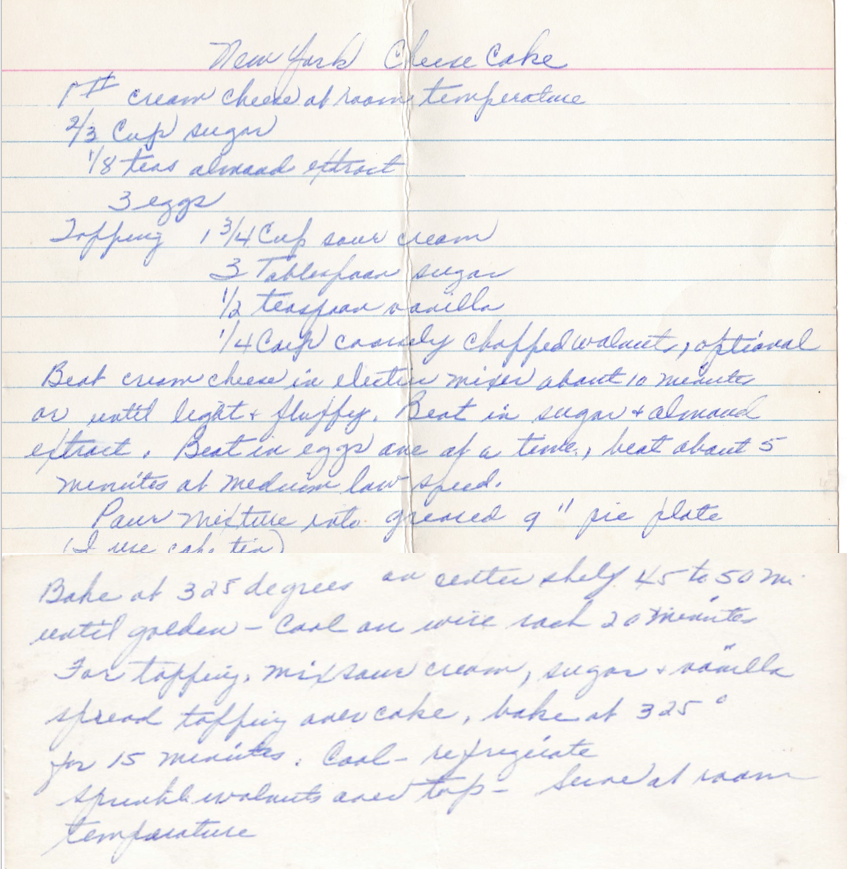 New York Cheese Cake
1# cream cheese at room temperature
2/3 Cup sugar
1/8 teas almond extract
3 eggs
Topping 1 3/4 Cup sour cream
3 Tablespoon sugar
1/2 teaspoon vanilla
1/4 Cup coarsely chopped walnuts, optional
Beat cream cheese in electric mixer about 10 minutes
or until light + fluffy. Beat in sugar + almond
extract. Beat in eggs one at a time, beat about 5
minutes at medium low speed.
Pour mixture into greased 9" pie plate
(I use cake tin)
Bake at 325 degrees on center shelf 45 to 50 mi.
until golden - Cool on wire rack 20 minutes
For topping, mix sour cream, sugar + vanilla
spread topping over cake, bake at 325°
for 15 minutes. Cool - refrigirate
sprinkle walnuts over top - Serve at room
temperature